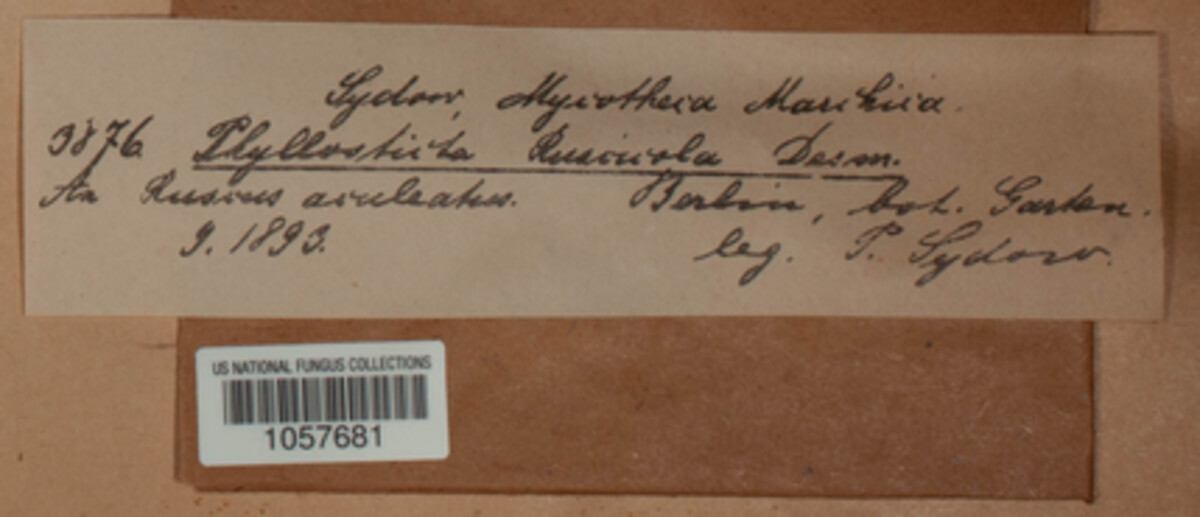 Sydow, Mycotheca Marchica.
3876. Phyllosticta Ruscicola Desm.
An Ruscus aculeatus. Berlin, bot. Garten.
9. 1893. leg. P. Sydow.
US NATIONAL FUNGUS COLLECTIONS
1057681